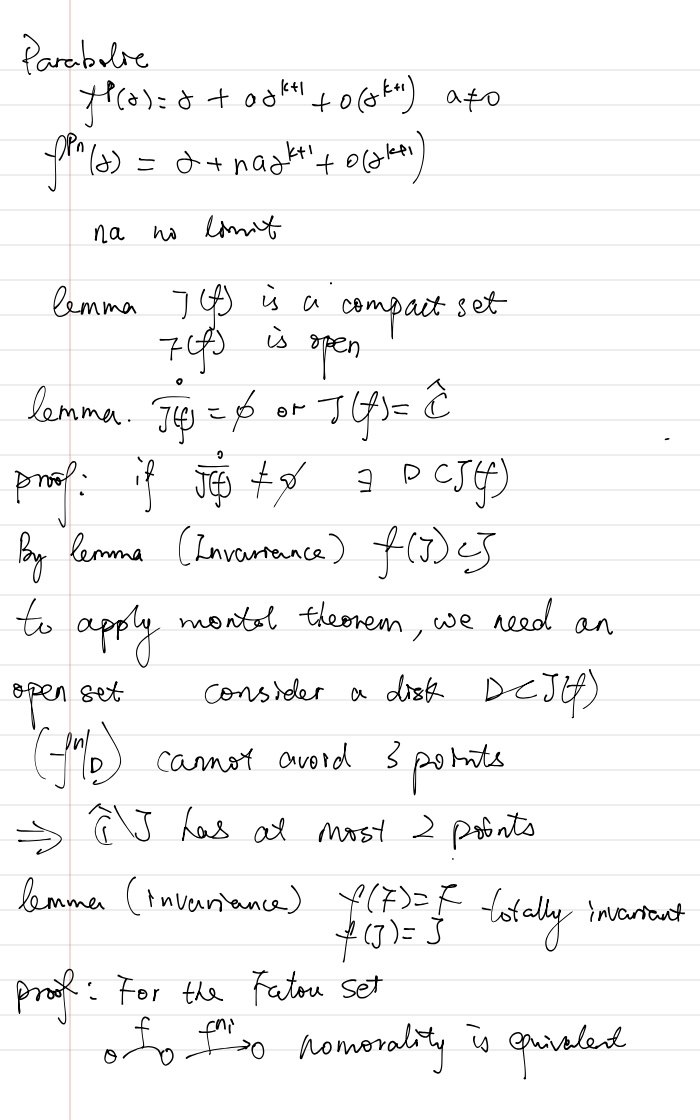 Parabolic
f^p(z) = z + az^{k+1} + o(z^{k+1}) a≠0
f^{pn}(z) = z + naz^{k+1} + o(z^{k+1})
na no limit
lemma J(f) is a compact set
F(f) is open
lemma. \mathring{J(f)} = ∅ or J(f) = Ĉ
proof: if \mathring{J(f)} ≠ ∅ ∃ D ⊂ J(f)
By lemma (Invariance) f(J) ⊂ J
to apply montel theorem, we need an
open set consider a disk D ⊂ J(f)
(f^n|_D) cannot avoid 3 points
⇒ Ĉ\J has at most 2 points
lemma (invariance) f(F) = F totally invariant
f(J) = J
proof: For the Fatou set
f f^{ni} nomorality is equivalent